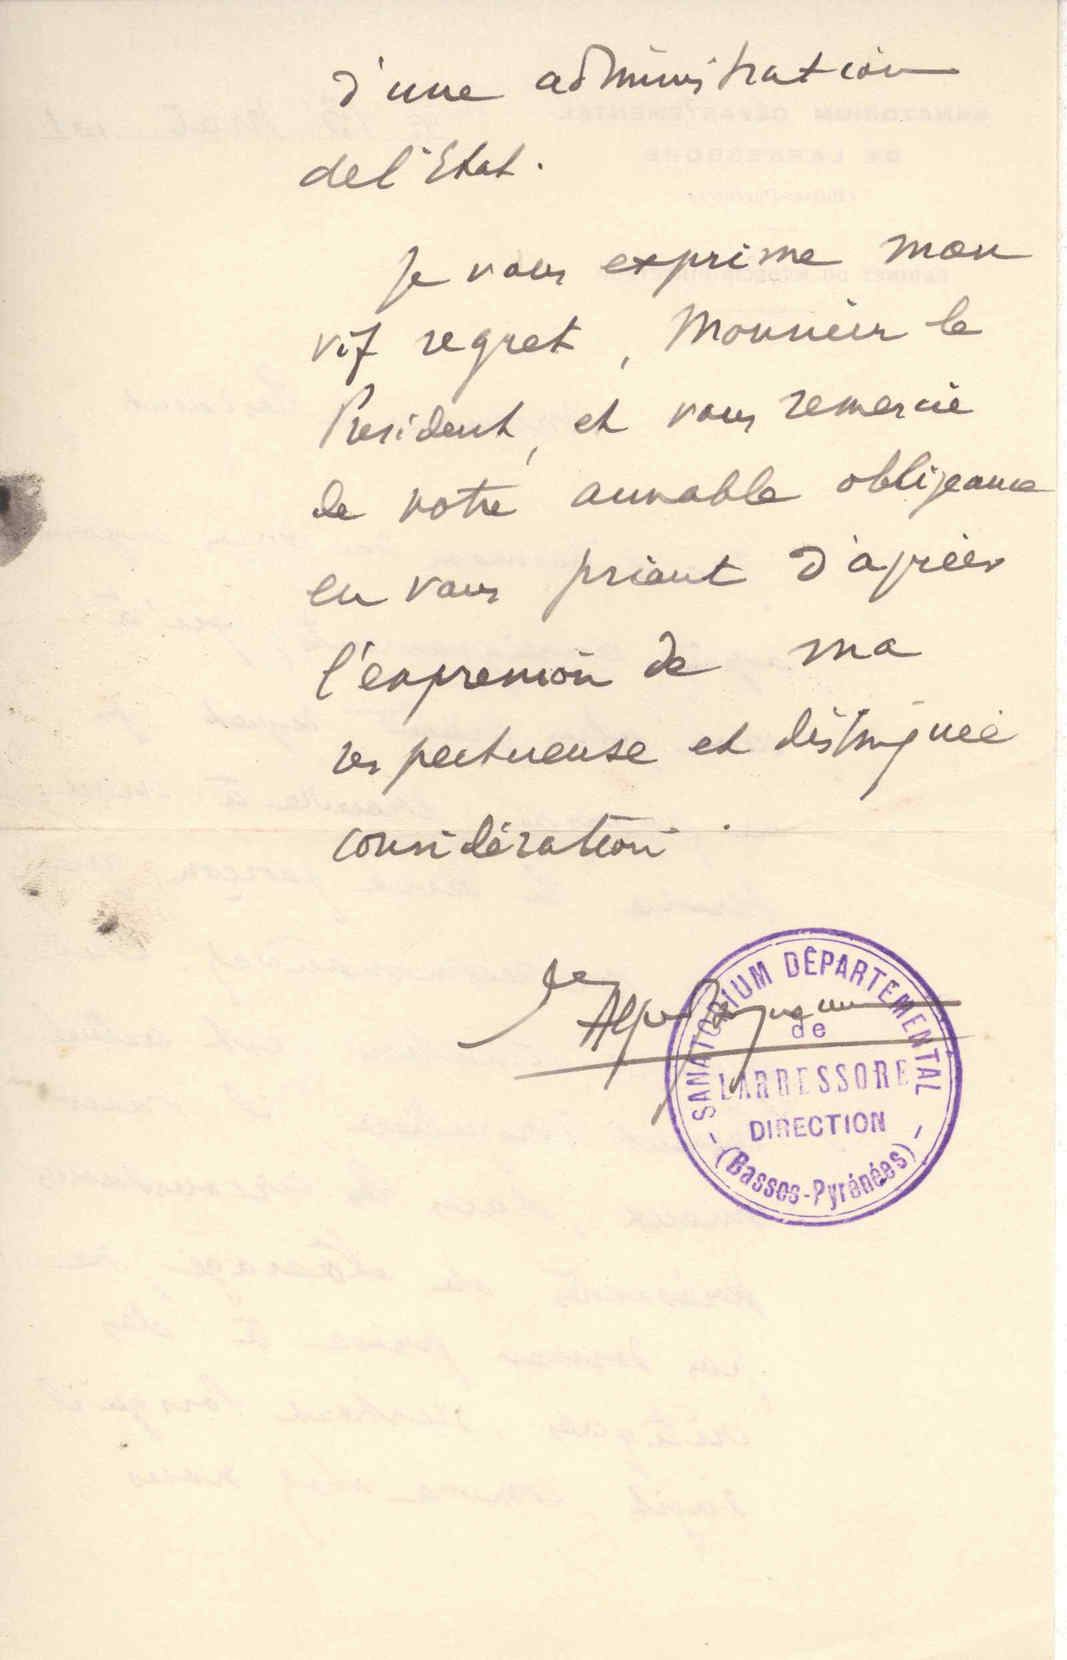 d'une administration
de l'Etat.
Je vous exprime mon
vif regret, Monsieur le
President, et vous remercie
de votre aimable obligeance
en vous priant d'agréer
l'expression de ma
respectueuse et distinguée
considération.
SANATORIUM DÉPARTEMENTAL
de
LARRESSORE
DIRECTION
(Basses-Pyrénées)